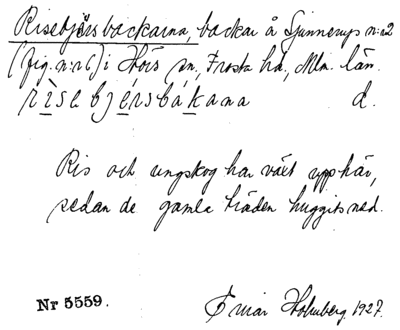 Risebjärsbackarna, backar å Sjunnerup n:r 2
(fig. n:r 6) i Hörs sn, Frosta hd, Mlm. län.
rìsebjérsbákana d.
Ris och ungskog har växt upp här,
sedan de gamla träden huggits ned.
Nr 5559. Einar Holmberg 1927.